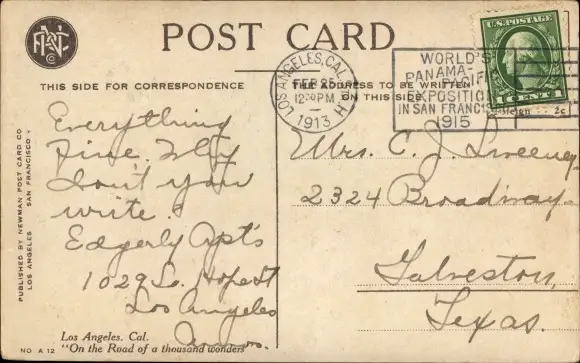 POST CARD
THIS SIDE FOR CORRESPONDENCE
THE ADDRESS TO BE WRITTEN
ON THIS SIDE
U.S. POSTAGE
1 CENT 1
LOS ANGELES, CAL.
FEB 25
12:30 PM
1913
WORLD'S
PANAMA-PACIFIC
EXPOSITION
IN SAN FRANCISCO
1915
2c
Everything
Fine. Why
don't you
write?
Edgerly Apt's
1029 So. Hope St
Los Angeles
Mrs. C. J. Sweeney
2324 Broadway
Galveston,
Texas.
PUBLISHED BY NEWMAN POST CARD CO
LOS ANGELES SAN FRANCISCO
NO A 12
Los Angeles. Cal.
"On the Road of a thousand wonders"